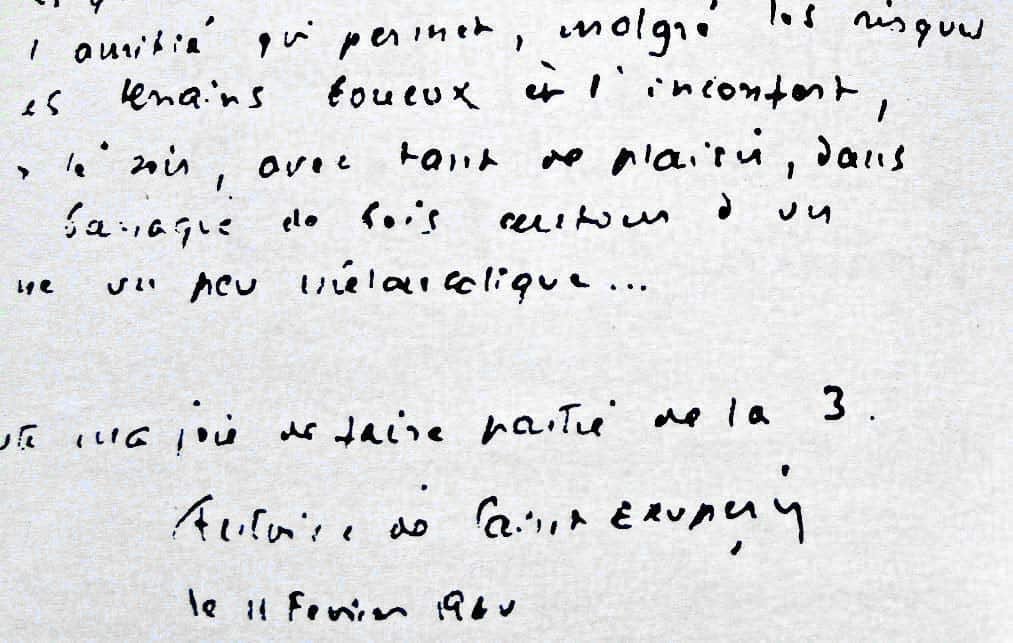 l'amitié qui permet, malgré les risques
es terrains boueux et l'inconfort,
le soir, avec tant de plaisir, dans
baraque de bois autour d'un
ne un peu mélancolique...
ma joie de faire partie de la 3.
Antoine de Saint Exupéry
le 11 Fevrier 1940